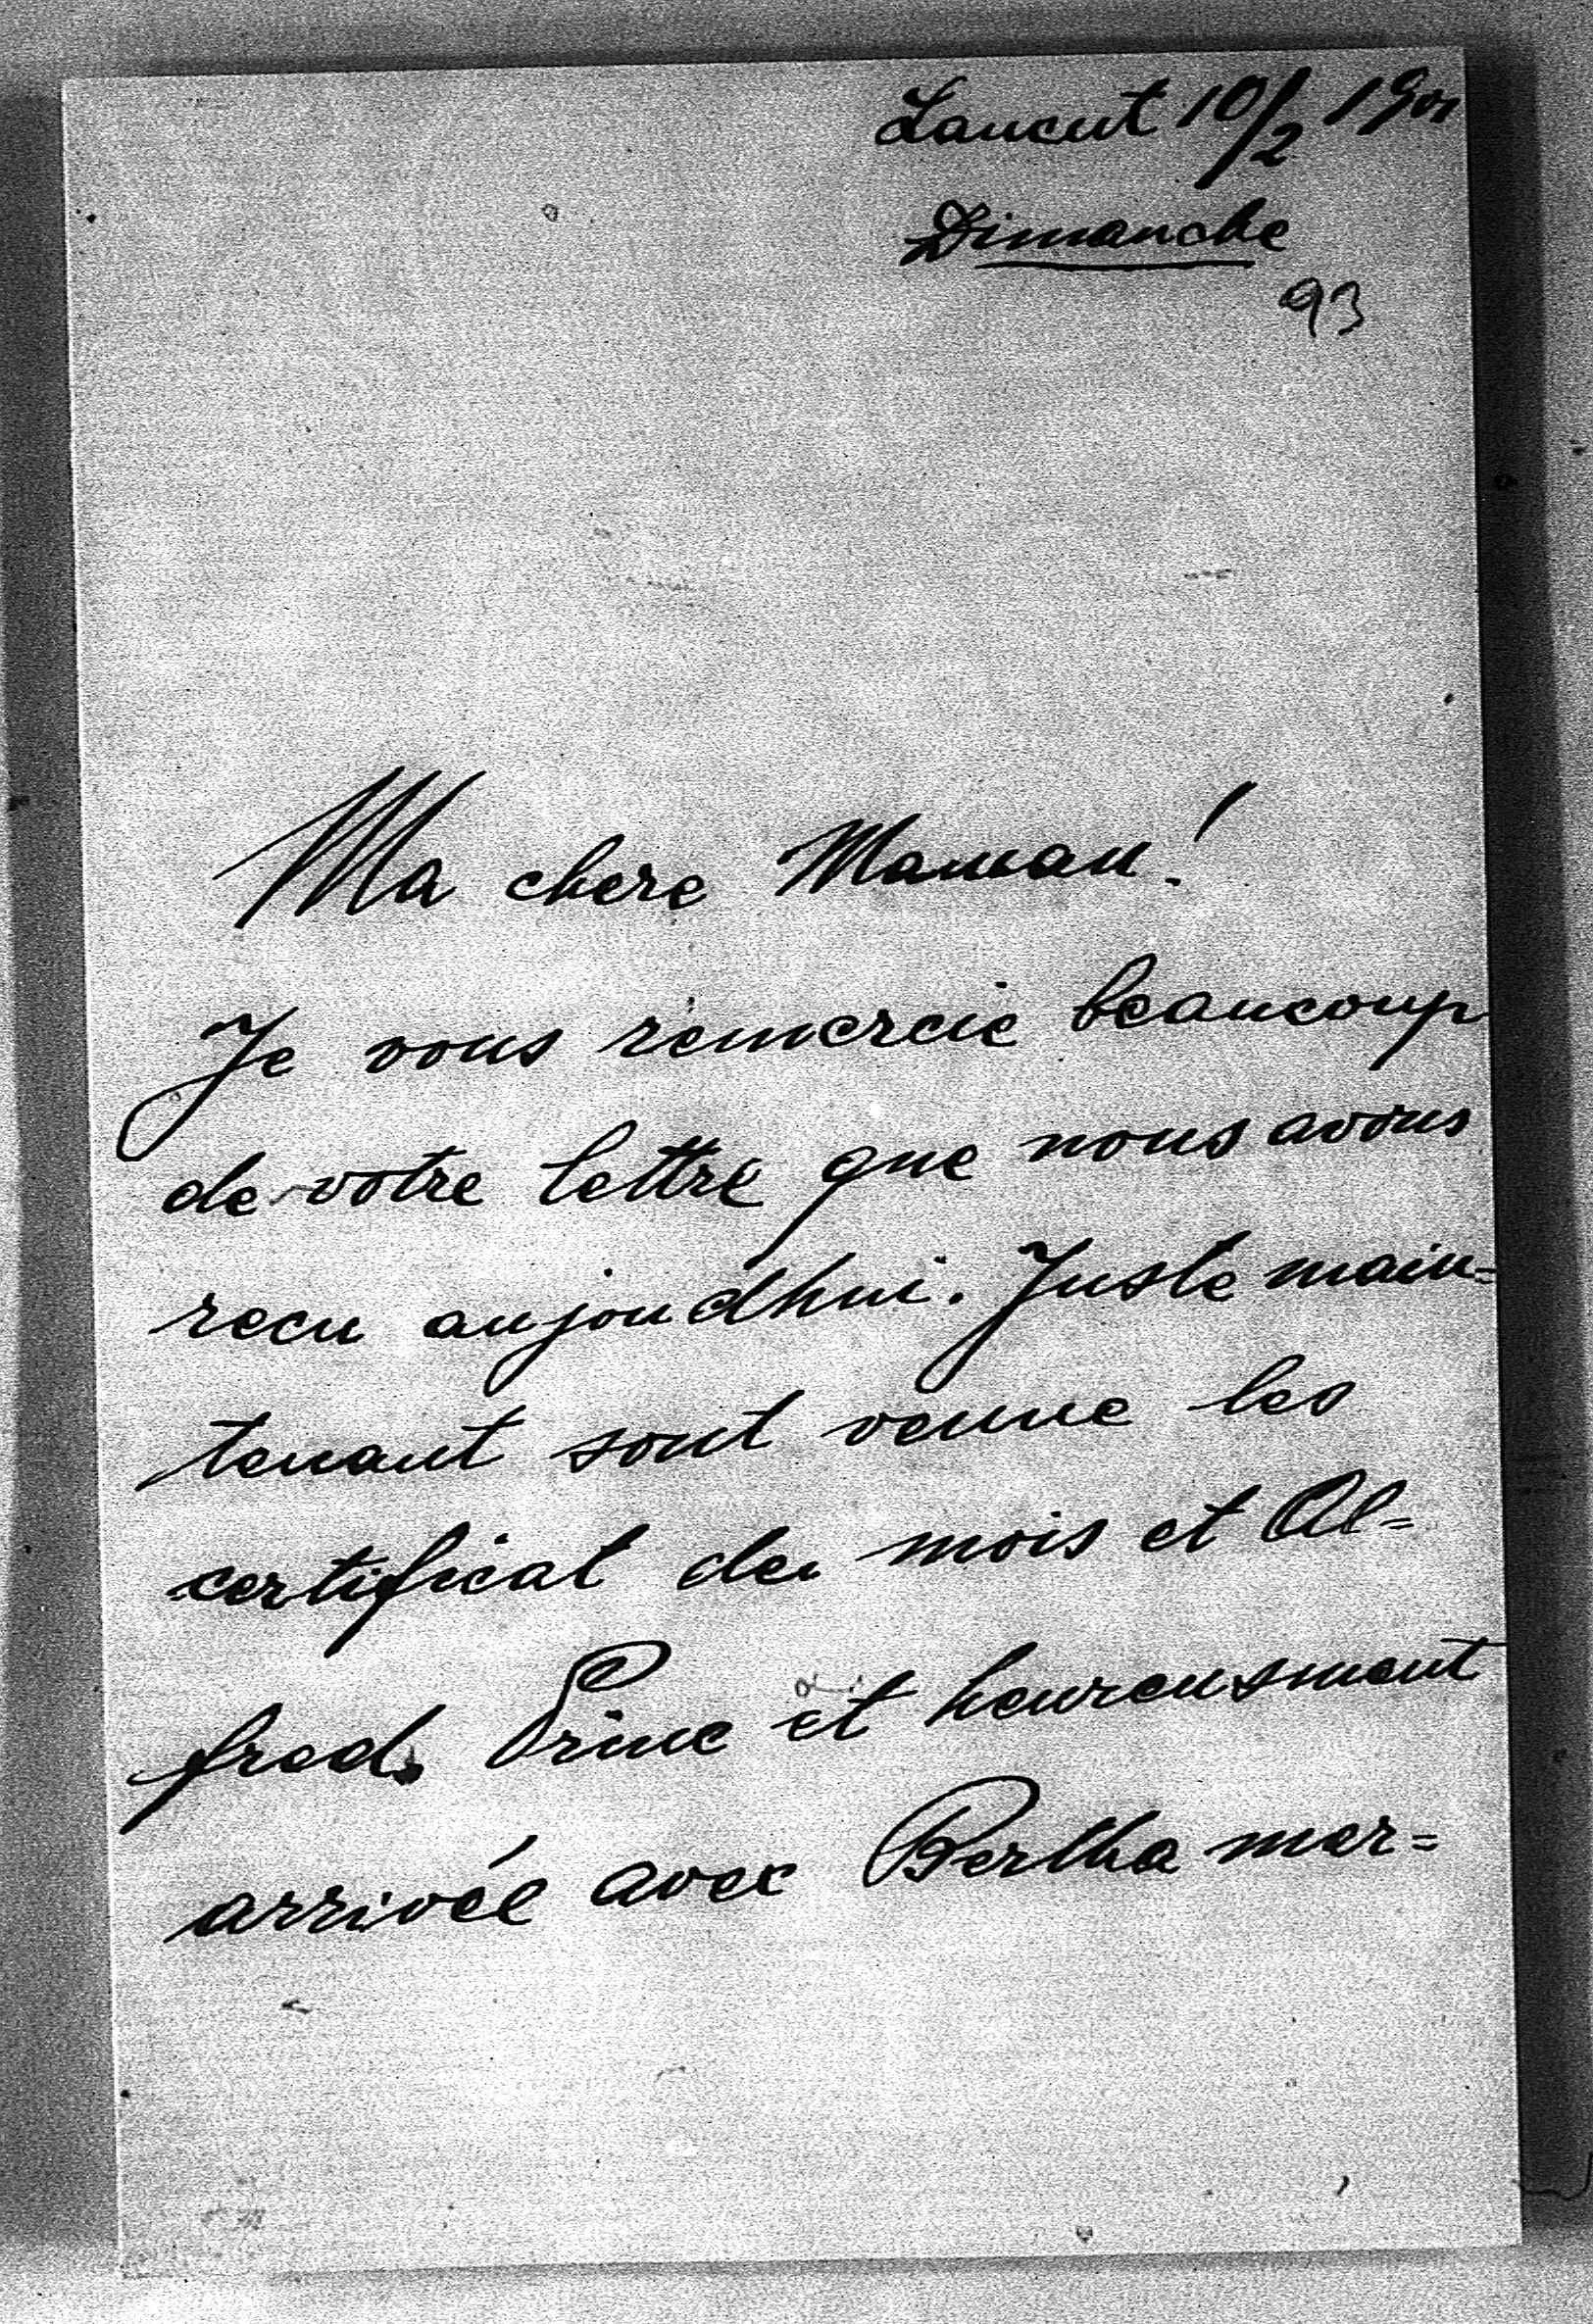 Lancut 10/2 1901
Dimanche
93
Ma chere Maman!
Je vous remercie beaucoup
de votre lettre que nous avons
recu aujoudhui. Juste main=
tenant sont venue les
certificat de mois et Al=
fred. Princ et heureusment
arrivée avec Bertha mer=